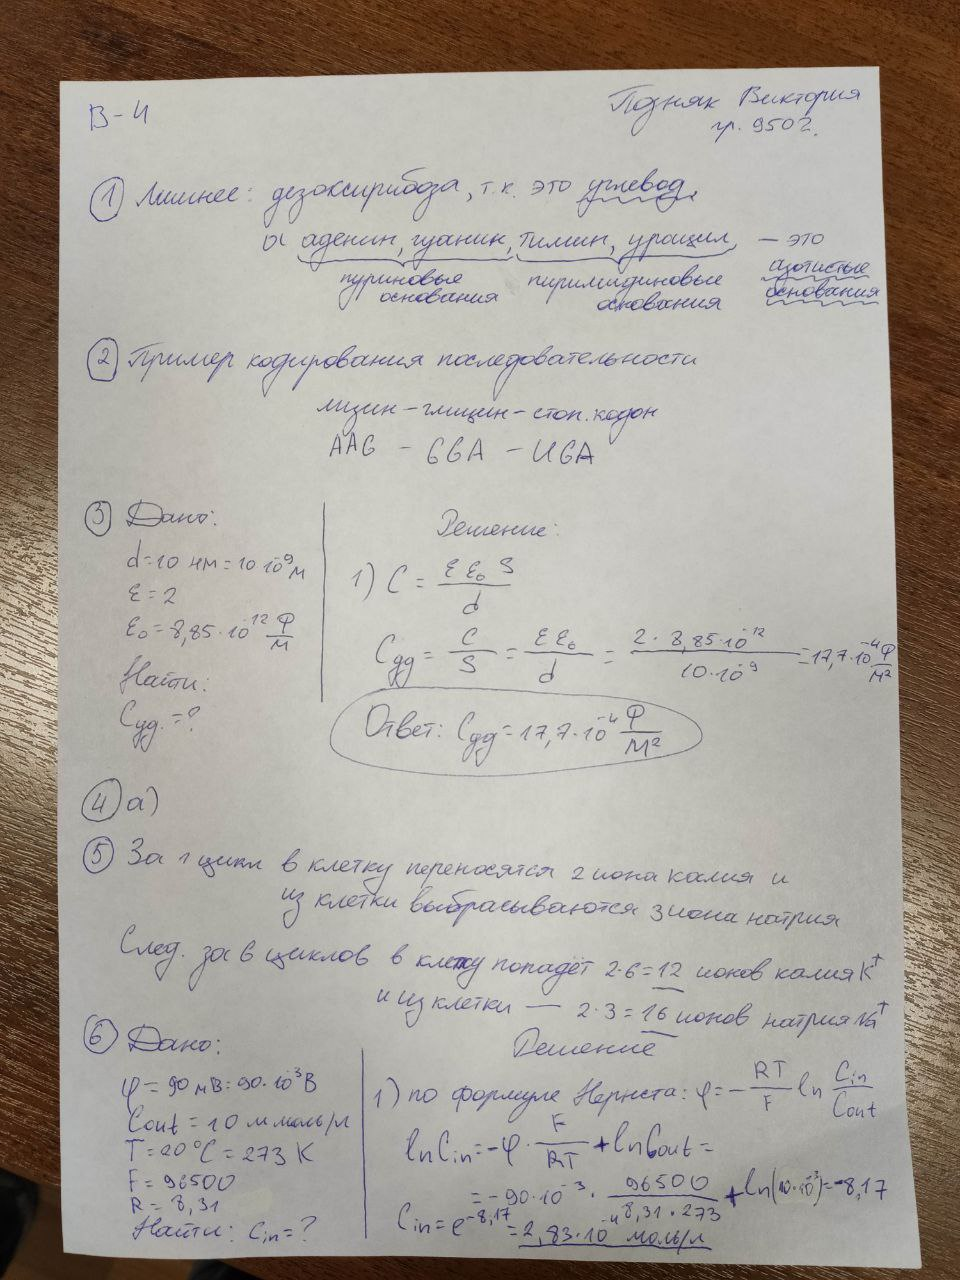 В-4
Позняк Виктория
гр. 9502.
① Лишнее: дезоксирибоза, т.к. это углевод,
а аденин, гуанин, тимин, урацил, — это
пуриновые основания пиримидиновые основания азотистые основания
② Пример кодирования последовательности
лизин – глицин – стоп. кодон
AAG – GGA – UGA
③ Дано:
d=10 нм = 10·10⁻⁹ м
ε = 2
ε₀ = 8,85·10⁻¹² Ф/м
Найти:
Cуд. = ?
Решение:
1) C = εε₀S/d
Cуд = C/S = εε₀/d = 2·8,85·10⁻¹²/10·10⁻⁹ = 17,7·10⁻⁴ Ф/м²
Ответ: Cуд = 17,7·10⁻⁴ Ф/м²
④ а)
⑤ За 1 цикл в клетку переносятся 2 иона калия и
из клетки выбрасываются 3 иона натрия
След. за 6 циклов в клетку попадёт 2·6=12 ионов калия K⁺
и из клетки — 2·3=16 ионов натрия Na⁺
⑥ Дано:
φ = 90 мВ = 90·10⁻³ В
Cout = 10 ммоль/л
T = 20°C = 273 K
F = 96500
R = 8,31
Найти: Cin = ?
Решение
1) по формуле Нернста: φ = – RT/F ln Cin/Cout
ln Cin = –φ · F/RT + ln Cout =
= –90·10⁻³ · 96500/8,31·273 + ln(10·10⁻³) = –8,17
Cin = e⁻⁸,¹⁷ = 2,83·10⁻⁴ моль/л